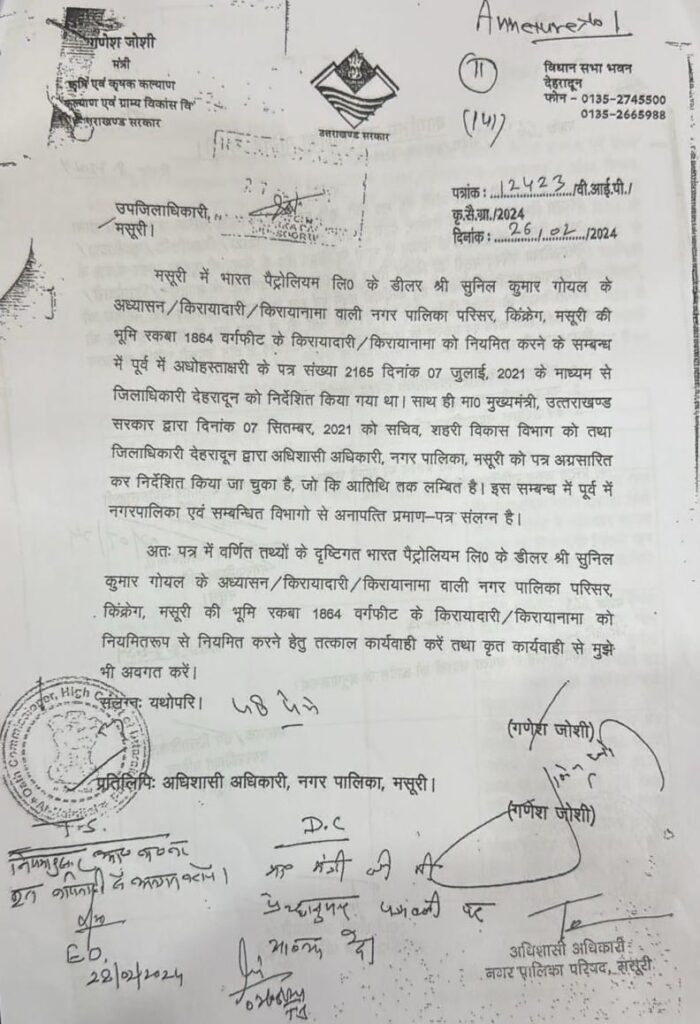 Annexure No 1
गणेश जोशी
मंत्री
कृषि एवं कृषक कल्याण
कल्याण एवं ग्राम्य विकास वि
उत्तराखण्ड सरकार
उत्तराखण्ड सरकार
11
(141)
विधान सभा भवन
देहरादून
फोन - 0135-2745500
0135-2665988
पत्रांक : 12423 /वी.आई.पी./
कृ.सै.ग्रा./2024
दिनांक : 26/02/2024
उपजिलाधिकारी,
मसूरी।
मसूरी में भारत पैट्रोलियम लि0 के डीलर श्री सुनिल कुमार गोयल के
अध्यासन/किरायादारी/किरायानामा वाली नगर पालिका परिसर, किंक्रेग, मसूरी की
भूमि रकबा 1864 वर्गफीट के किरायादारी/किरायानामा को नियमित करने के सम्बन्ध
में पूर्व में अधोहस्ताक्षरी के पत्र संख्या 2165 दिनांक 07 जुलाई, 2021 के माध्यम से
जिलाधिकारी देहरादून को निर्देशित किया गया था। साथ ही मा0 मुख्यमंत्री, उत्तराखण्ड
सरकार द्वारा दिनांक 07 सितम्बर, 2021 को सचिव, शहरी विकास विभाग को तथा
जिलाधिकारी देहरादून द्वारा अधिशासी अधिकारी, नगर पालिका, मसूरी को पत्र अग्रसारित
कर निर्देशित किया जा चुका है, जो कि आतिथि तक लम्बित है। इस सम्बन्ध में पूर्व में
नगरपालिका एवं सम्बन्धित विभागो से अनापत्ति प्रमाण-पत्र संलग्न है।
अतः पत्र में वर्णित तथ्यों के दृष्टिगत भारत पैट्रोलियम लि0 के डीलर श्री सुनिल
कुमार गोयल के अध्यासन/किरायादारी/किरायानामा वाली नगर पालिका परिसर,
किंक्रेग, मसूरी की भूमि रकबा 1864 वर्गफीट के किरायादारी/किरायानामा को
नियमितरूप से नियमित करने हेतु तत्काल कार्यवाही करें तथा कृत कार्यवाही से मुझे
भी अवगत करें।
संलग्नः यथोपरि।
(गणेश जोशी)
प्रतिलिपिः अधिशासी अधिकारी, नगर पालिका, मसूरी।
(गणेश जोशी)
T.S.
D.C
मंत्री जी की
E.O.
28/02/2024
अधिशासी अधिकारी
नगर पालिका परिषद, मसूरी